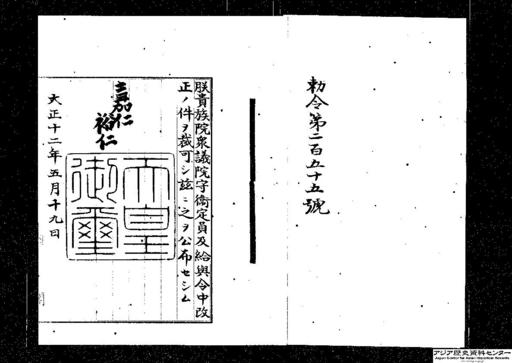 勅令第二百五十五號
朕貴族院衆議院守衞定員及給與令中改
正ノ件ヲ裁可シ茲ニ之ヲ公布セシム
嘉仁
裕仁
天皇御璽
大正十二年五月十九日
アジア歴史資料センター
Japan Center for Asian Historical Records